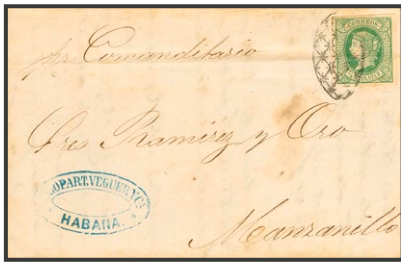 por Comanditario
CORREOS
Sres Ramirez y Oro
LOPART, VEGUER Y Cª
HABANA.
Manzanillo